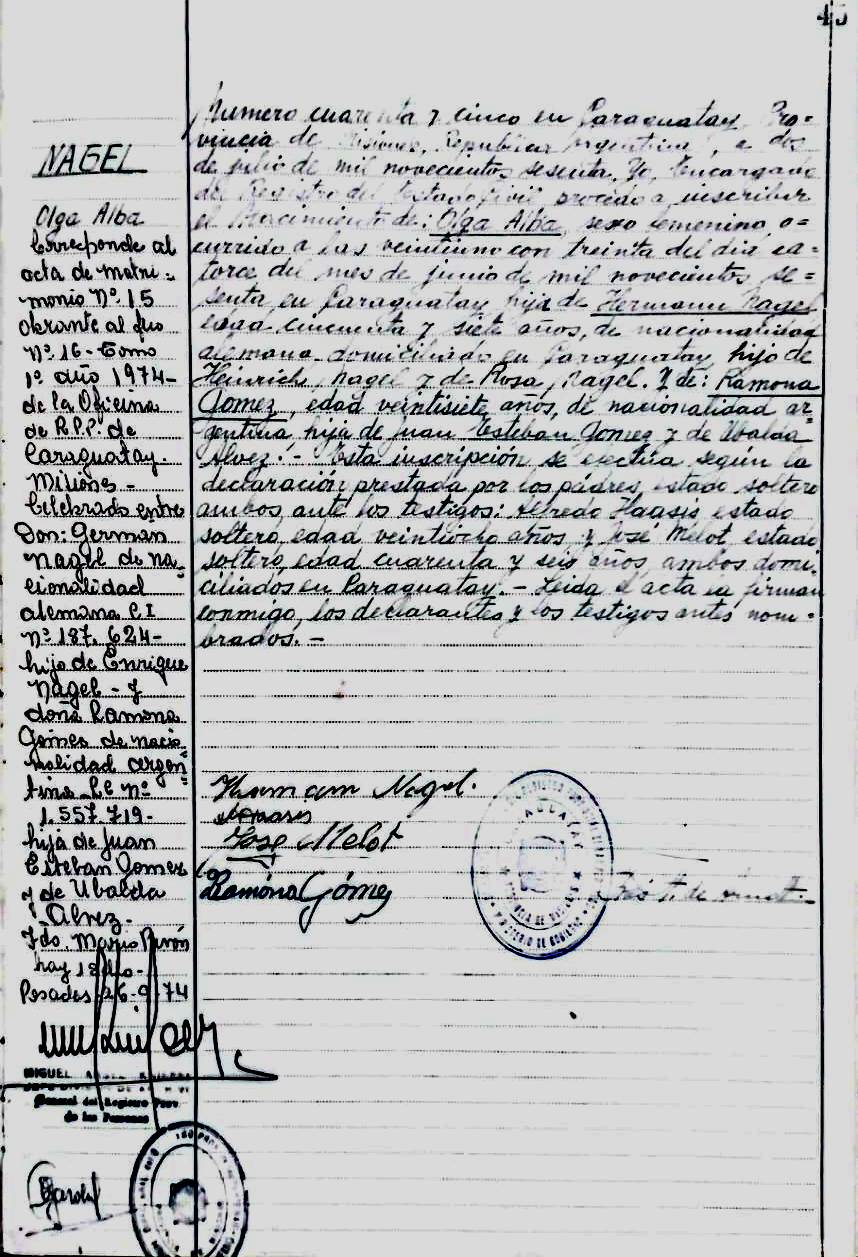 45
NAGEL
Olga Alba
Corresponde al
acta de matri-
monio Nº 15
obrante al fº
Nº 16 - Tomo
1º año 1974-
de la Oficina
de R.P.P. de
Caraguatay.
Misiones -
Celebrado entre
Don: German
Nagel de na-
cionalidad
alemana CI
nº 187.624-
hijo de Enrique
Nagel - y
doña Ramona
Gomez de nacio
nalidad argen
tina LC nº
1.557.719-
hija de Juan
Esteban Gomez
y de Ubalda
Alvez.-
Fdo. Mario
hay sello-
Posadas 26-9-74
MIGUEL
General del Registro Prov.
de las Personas
Numero cuarenta y cinco en Caraguatay, Pro=
vincia de Misiones, Republica Argentina, a dos
de julio de mil novecientos sesenta. Yo, Encargado
del Registro del Estado Civil procedo a inscribir
el Nacimiento de: Olga Alba, sexo femenino, o=
currido a las veintiuno con treinta del dia ca=
torce del mes de junio de mil novecientos se=
senta en Caraguatay hija de Hermann Nagel
edad cincuenta y siete años, de nacionalidad
alemana domiciliado en Caraguatay, hijo de
Heinrich, Nagel y de Rosa, Nagel. Y de: Ramona
Gomez, edad veintisiete años, de nacionalidad ar-
gentina hija de Juan Esteban Gomez y de Ubalda
Alvez.- Esta inscripción se efectúa según la
declaración prestada por los padres, estado soltero
ambos, ante los testigos: Alfredo Haasis estado
soltero, edad veintiocho años y José Melot estado
soltero, edad cuarenta y seis años, ambos domi-
ciliados en Caraguatay.- Leida el acta la firman
conmigo, los declarantes y los testigos antes nom-
brados.-
Hermann Nagel.
Jose Melot
Ramóna Gómez